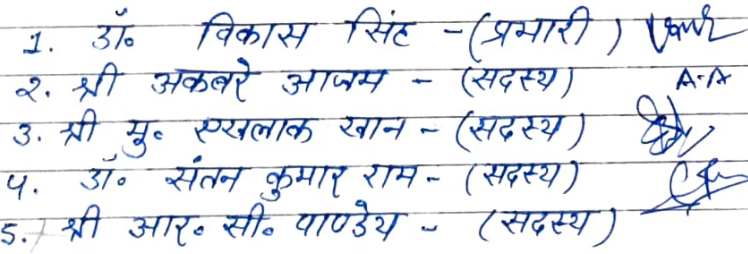 1. डॉ० विकास सिंह - (प्रभारी)
२. श्री अकबरे आजम - (सदस्य) A.A
3. श्री मु० एखलाक खान - (सदस्य)
4. डॉ० संतन कुमार राम - (सदस्य)
5. श्री आर० सी० पाण्डेय - (सदस्य)